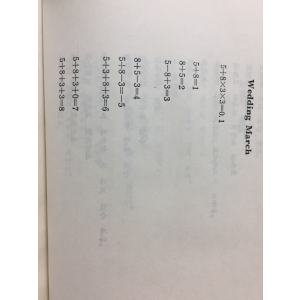 Wedding March
5+8×3×3=0.1
5+8=1
8+5=2
5−8+3=3
8+5−3=4
5+8−3=−5
5+3+8+3=6
5+8+3+0=7
5+8+3+3=8